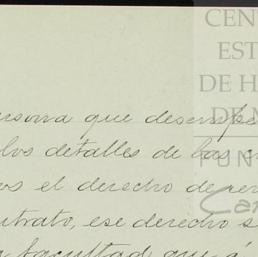 CEN
EST
DE H
DE
ersona que desempe
los detalles de las
os el derecho de re
trato, ese derecho s
facultad que á